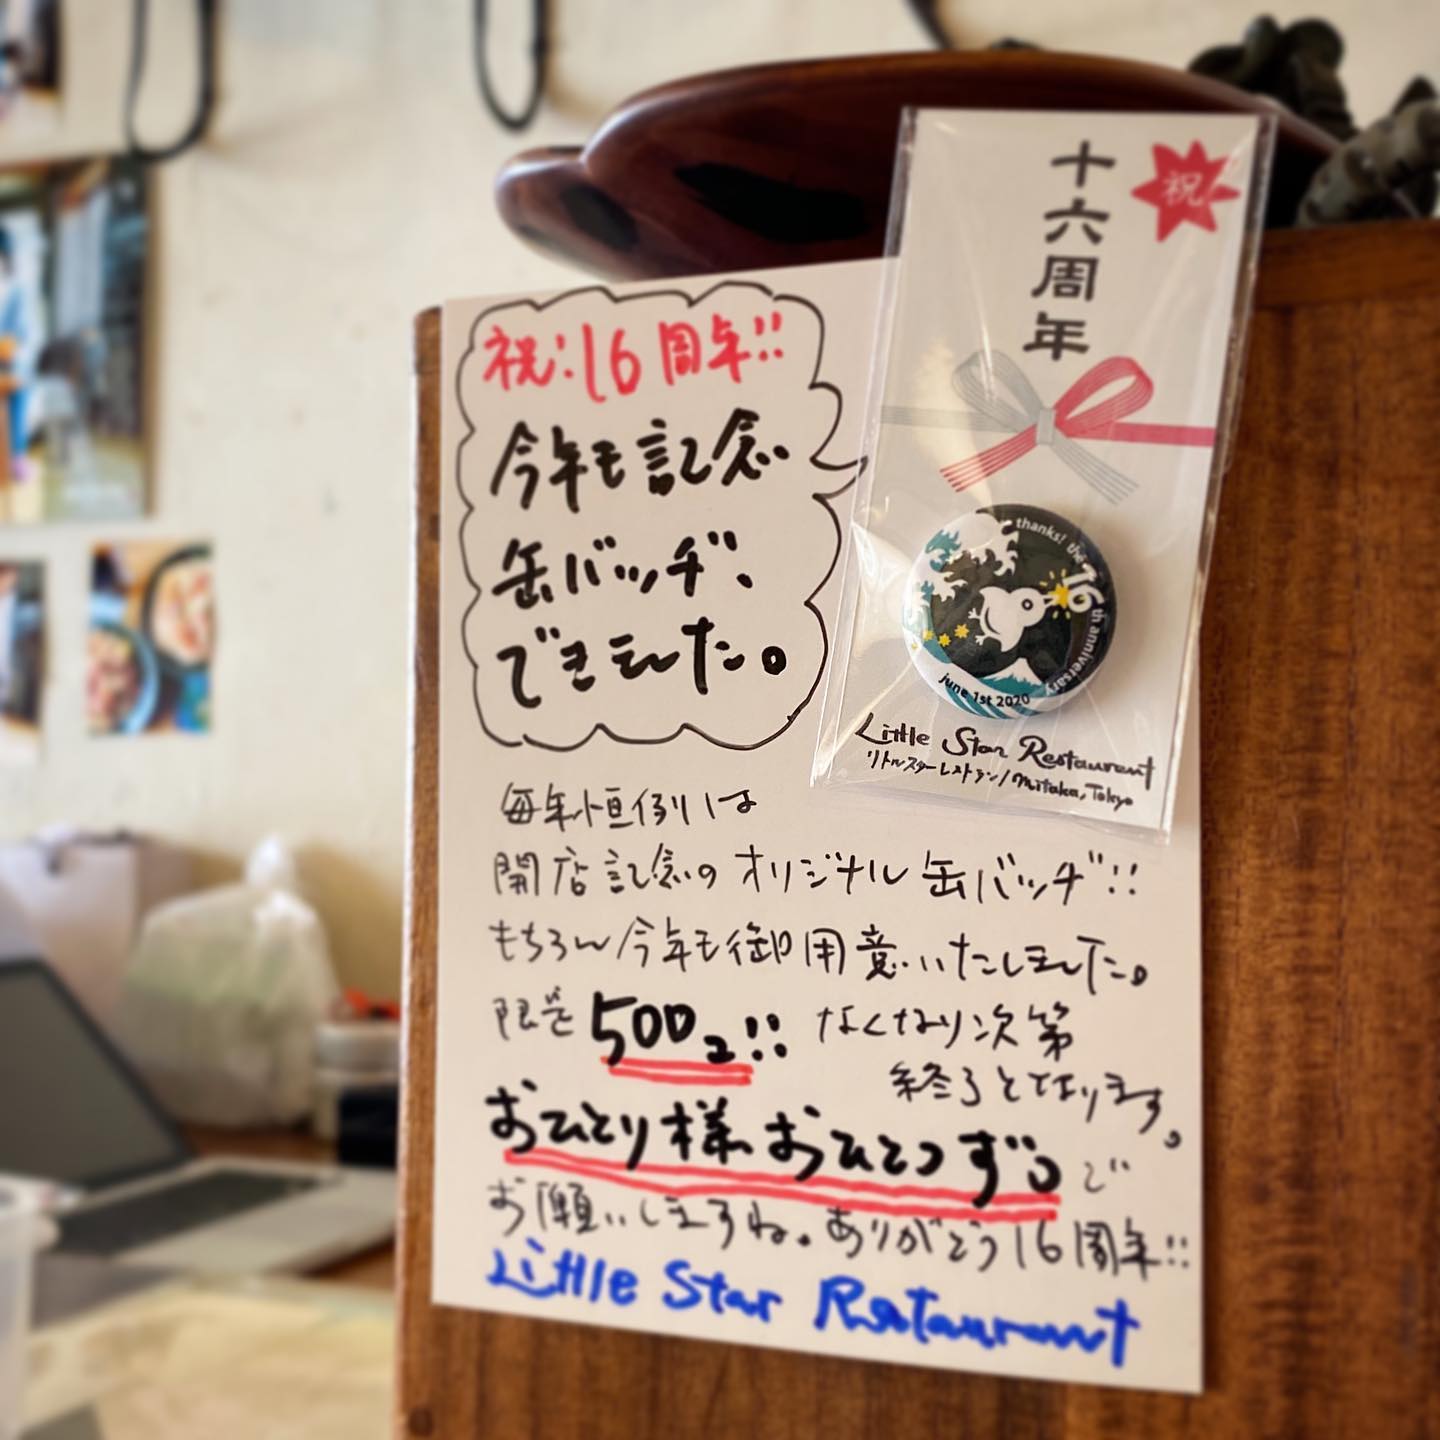 祝:16周年!!
今年も記念
缶バッヂ、
できました。
十六周年
祝
thanks! the 16th anniversary
june 1st 2020
Little Star Restaurant
リトルスターレストラン/Mitaka, Tokyo
毎年恒例は
開店記念のオリジナル缶バッヂ!!
もちろん今年も御用意いたしました。
限定500コ!! なくなり次第
終了となります。
おひとり様おひとつず。で
お願いしますね。ありがとう16周年!!
Little Star Restaurant